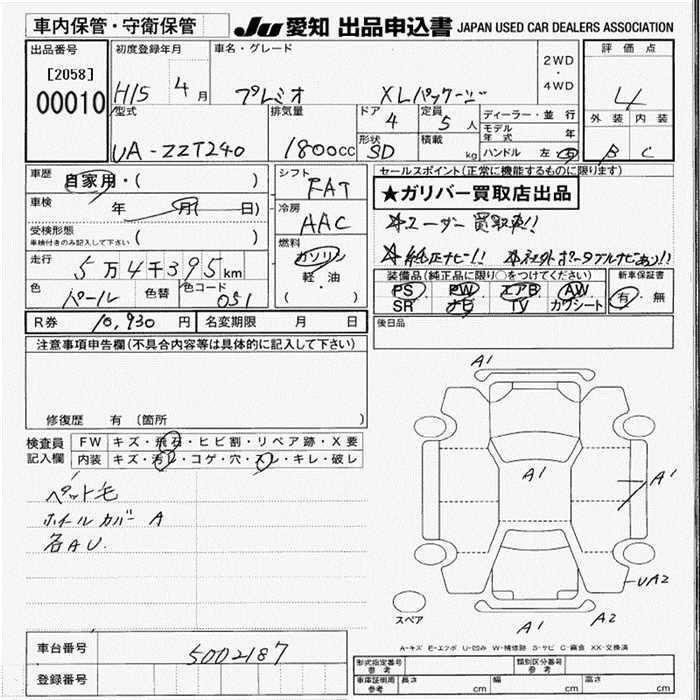 車内保管・守衛保管
JU 愛知 出品申込書 JAPAN USED CAR DEALERS ASSOCIATION
出品番号
[2058]
00010
初度登録年月
H15 4 月
車名・グレード
プレミオ XLパッケージ
2WD
・
4WD
評価点
4
外装 内装
B C
型式
UA-ZZT240
排気量
1800cc
ドア
4
定員
5 人
形状
SD
積載
kg
ディーラー・並行
モデル年式 年
ハンドル 左・右
車歴 自家用・( )
車検 年 月( 日)
受検形態
車検付きのみ記入して下さい ( )
走行 5万4千395km
色 パール 色替 色コード 051
シフト
FAT
冷房
AAC
燃料
ガソリン
軽・油
( )
セールスポイント(正常に機能するものに限ります)
★ガリバー買取店出品
☆ユーザー買取車!!
☆純正ナビ!! ☆社外ポータブルナビあり!!
装備品(純正品に限り○をつけてください)
PS・PW・エアB・AW
SR・ナビ・TV・カワシート
新車保証書
有・無
R券 10,930 円 名変期限 月 日
後日品
注意事項申告欄(不具合内容等は具体的に記入して下さい)
修復歴 有 〔箇所 〕
検査員記入欄
FW キズ・飛石・ヒビ割・リペア跡・X要
内装 キズ・汚レ・コゲ・穴・スレ・キレ・破レ
ペット毛
ホイールカバー A
各AU
A1
A1
A1
UA2
A1
A2
スペア
A-キズ E-エクボ U-凹み W-補修跡 S-サビ C-腐食 XX-交換済
車台番号 5002187
登録番号
形式指定番号 参考 類別区分番号 参考
車庫証明用 参考 長さ cm 幅 cm 高さ cm